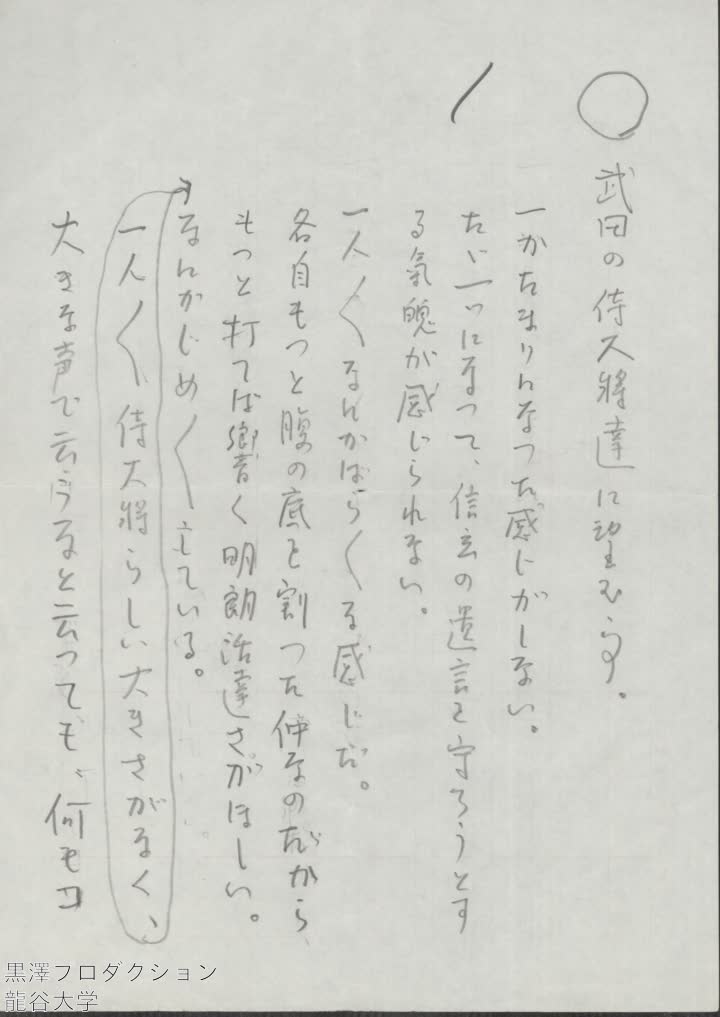 ◯ 武田の侍大將達に望む事。
一かたまりになつた感じがしない。
たゞ一つになつて、信玄の遺言を守ろうとす
る氣魄が感じられない。
一人〱なんかばら〱る感じだ。
各自もつと腹の底を割つた仲なのだから
もつと打てば響く明朗活達さがほしい。
なんかじめ〱している。
一人〱、侍大將らしい大きさがなく、
大きな声で云うなと云つても、何もコ
黒澤プロダクション
龍谷大学